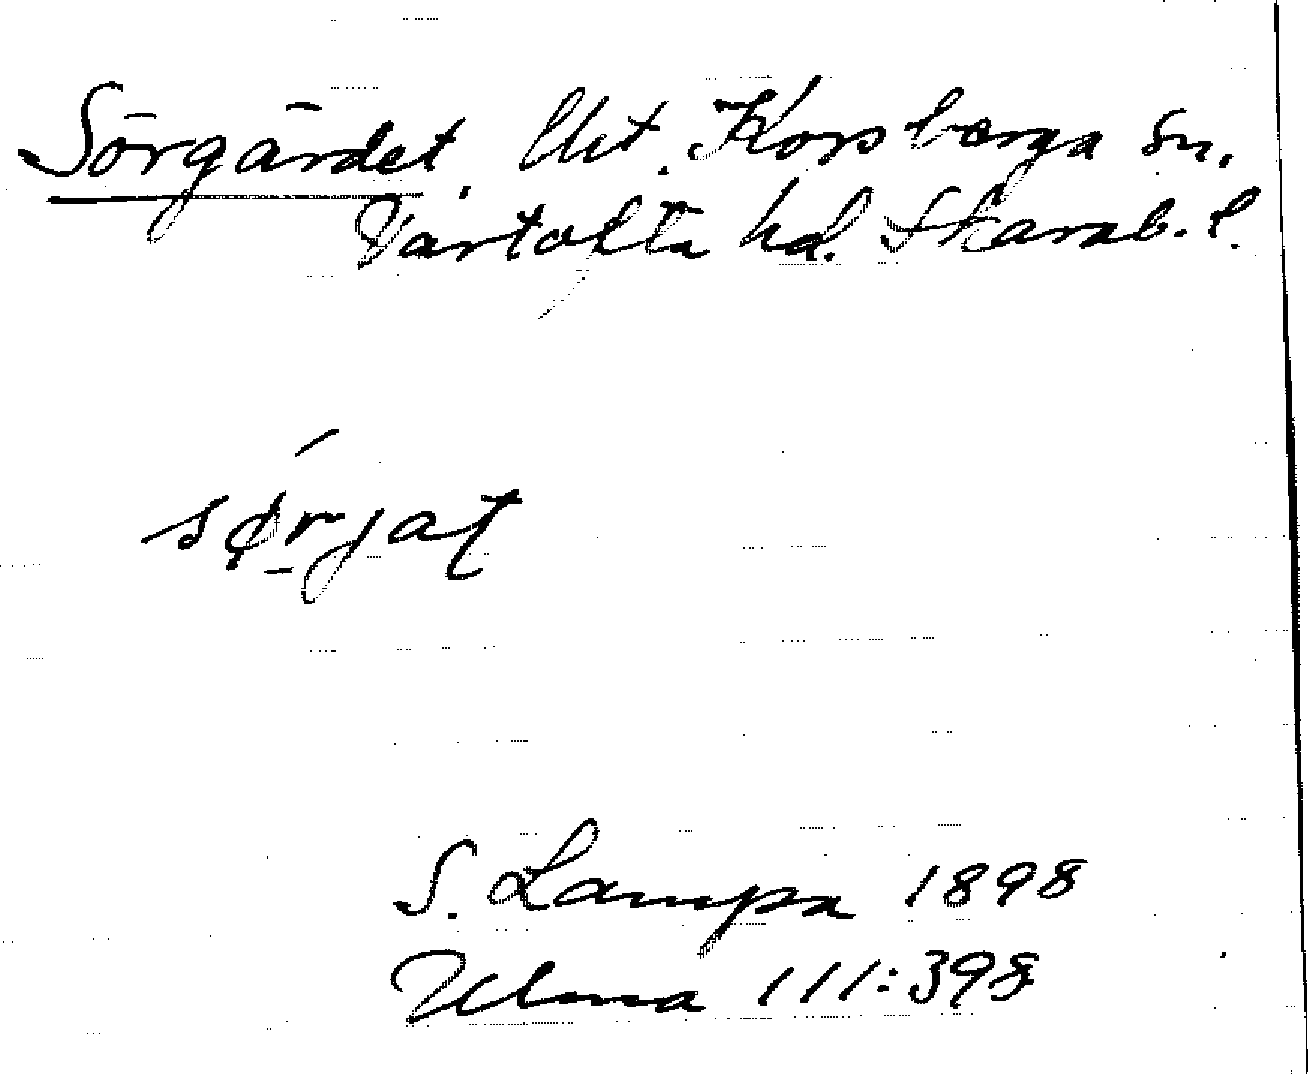 Sörgärdet. Utst. Korsberga sn.
Vartofta hd. Skarab. l.
sørjat
S. Lampa 1898
Ulma 111:398